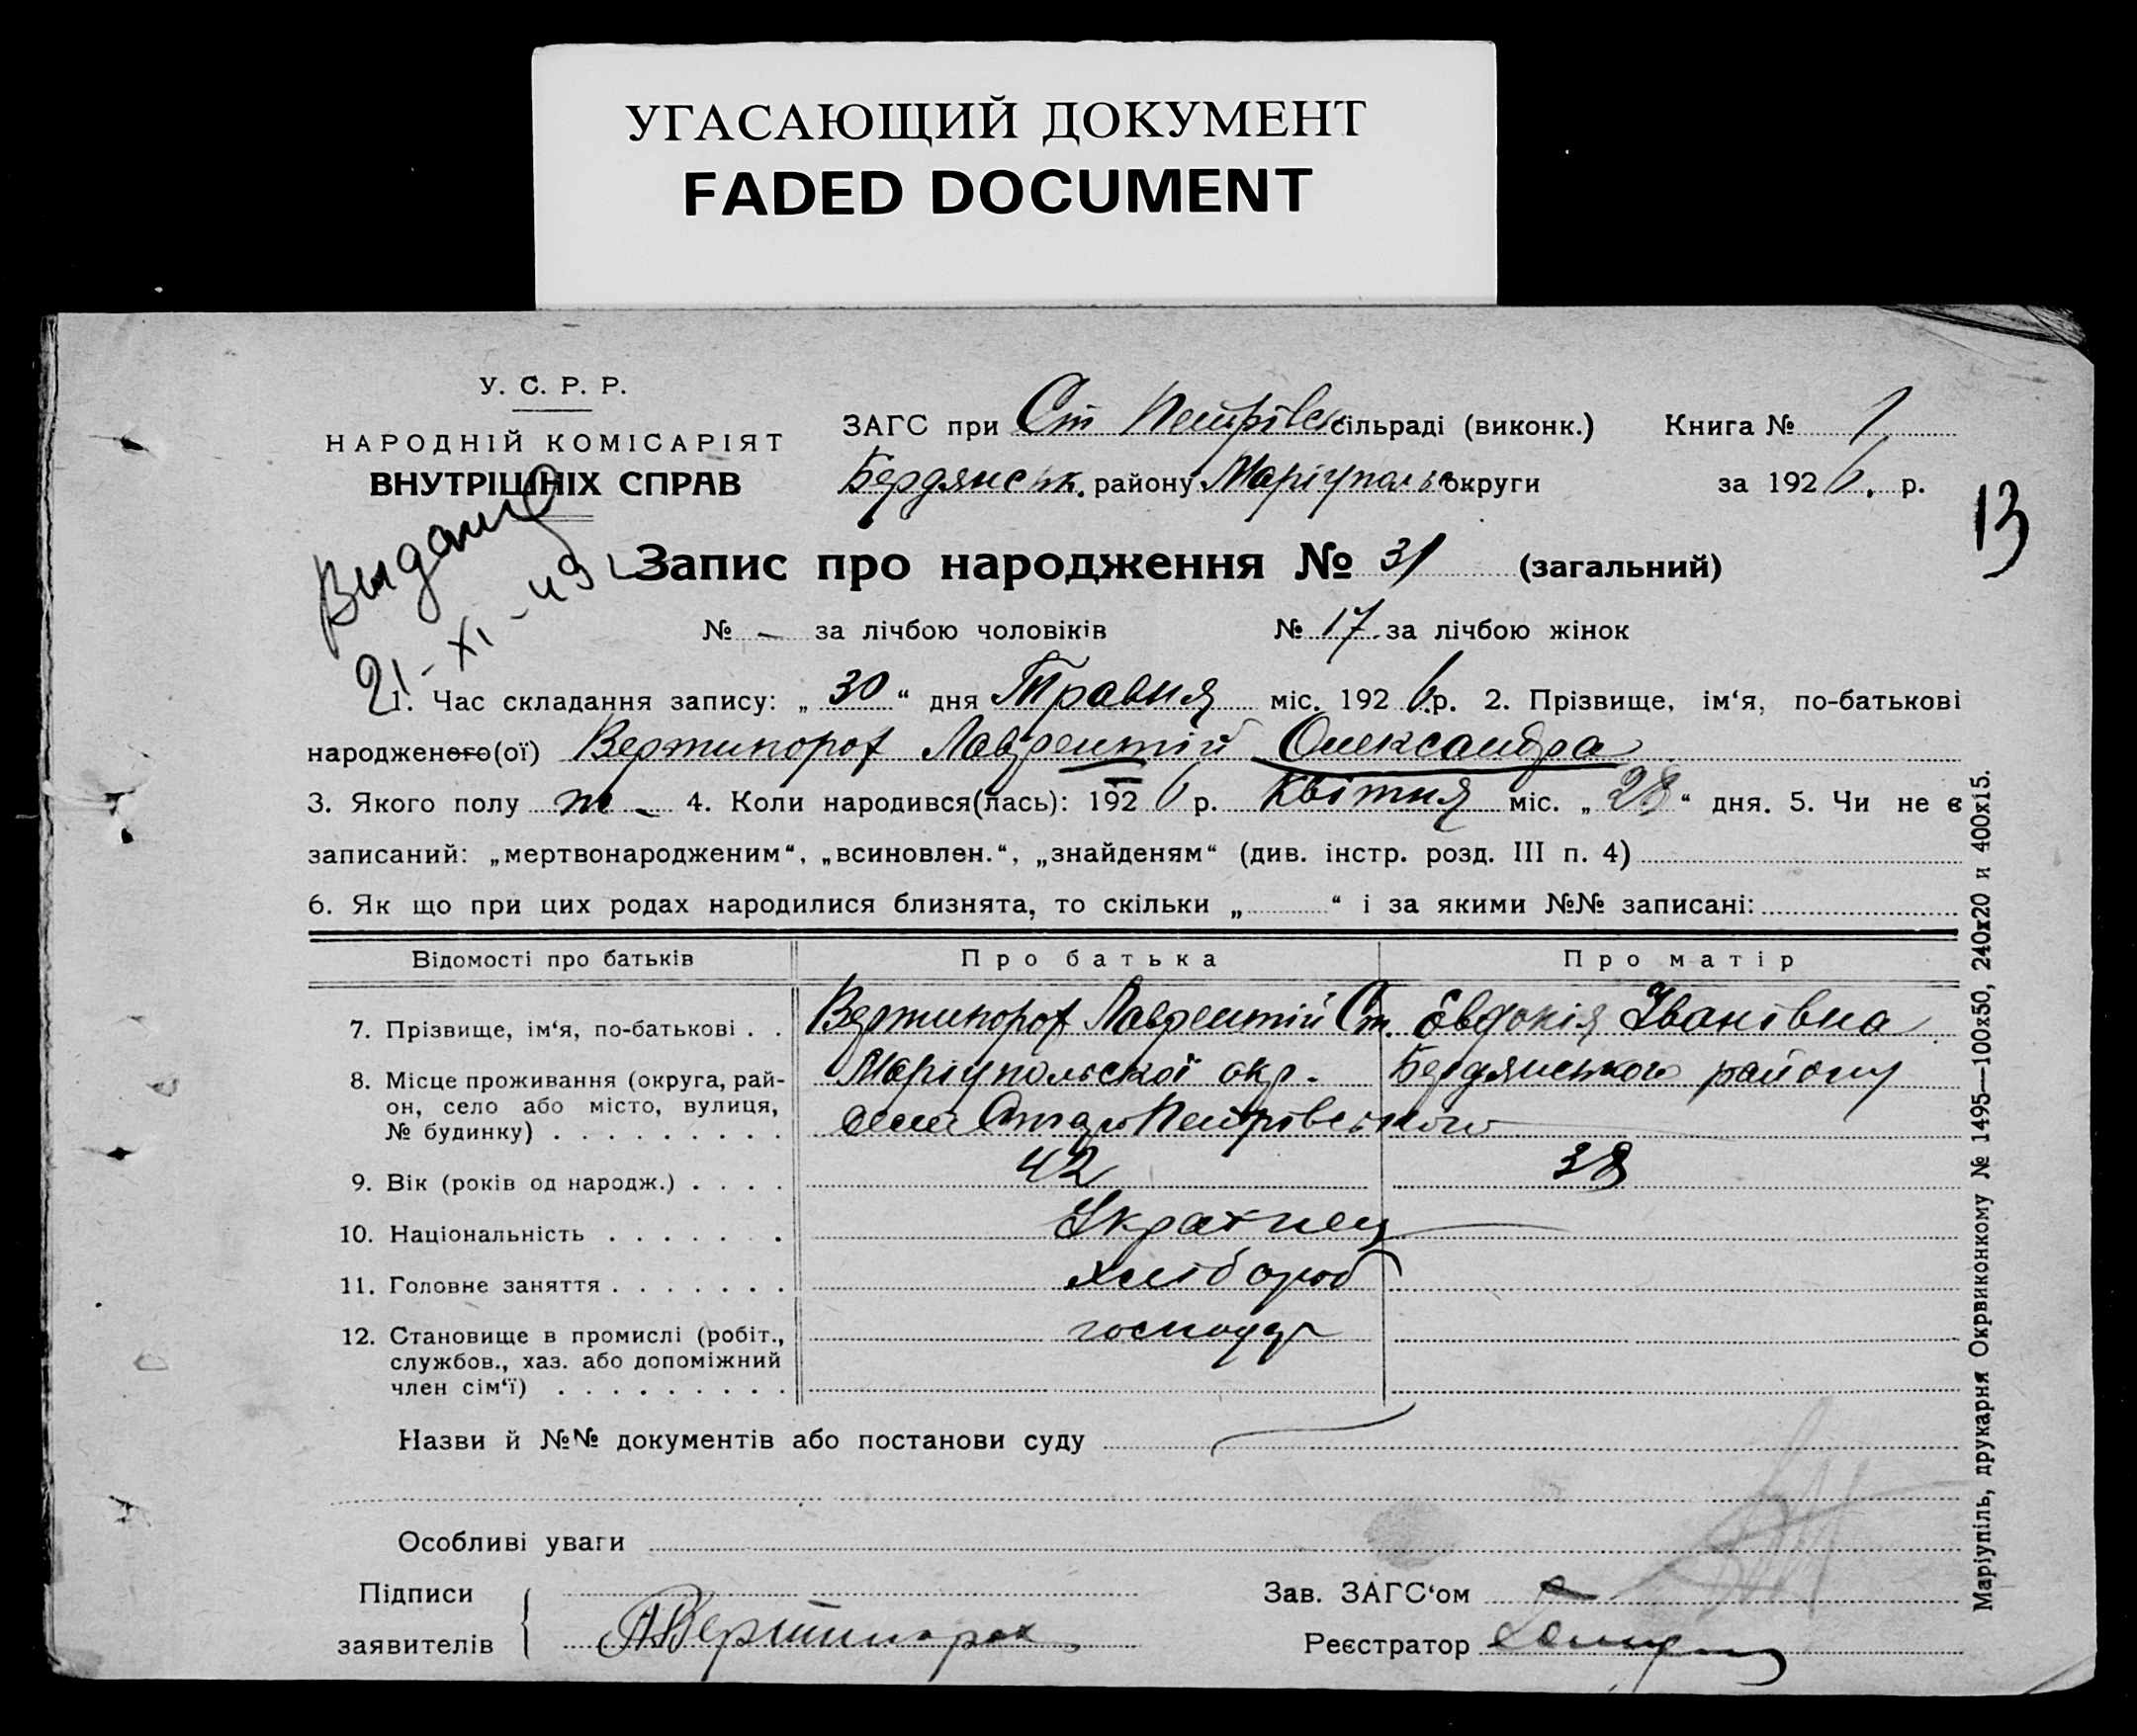 УГАСАЮЩИЙ ДОКУМЕНТ
FADED DOCUMENT
У. С. Р. Р.
НАРОДНІЙ КОМІСАРІЯТ
ВНУТРІШНІХ СПРАВ
ЗАГС при Ст Петрівск сільраді (виконк.) Книга № 1
Бердянськ. району Маріуполь округи за 1926. р.
13
Видано
21-XI-49
Запис про народження № 31 (загальний)
№ – за лічбою чоловіків № 17 за лічбою жінок
1. Час складання запису: „30“ дня Травня міс. 1926 р. 2. Прізвище, ім‘я, по-батькові
народженого(ої) Вертипорох Лаврентій Олександра
3. Якого полу ж 4. Коли народився(лась): 1926 р. Квітня міс. „28“ дня. 5. Чи не є
записаний: „мертвонародженим“, „всиновлен.“, „знайденям“ (див. інстр. розд. III п. 4)
6. Як що при цих родах народилися близнята, то скільки „ “ і за якими №№ записані:
Відомості про батьків Про батька Про матір
7. Прізвище, ім‘я, по-батькові . . Вертипорох Лаврентій Ст. Євдокія Іванівна
8. Місце проживання (округа, рай- Маріупольської окр. Бердянського району
он, село або місто, вулиця, села Старо Петрівського
№ будинку)
9. Вік (років од народж.) . . . . 42 38
10. Національність . . . . . . . Українец
11. Головне заняття . . . . . . . хлібороб
12. Становище в промислі (робіт., господар
службов., хаз. або допоміжний
член сім‘ї) . . . . . . . . .
Назви й №№ документів або постанови суду
Особливі уваги
Підписи Зав. ЗАГС‘ом
заявителів Вертипорох Реєстратор
Маріупіль, друкарня Окрвиконкому № 1495—100х50, 240х20 и 400х15.